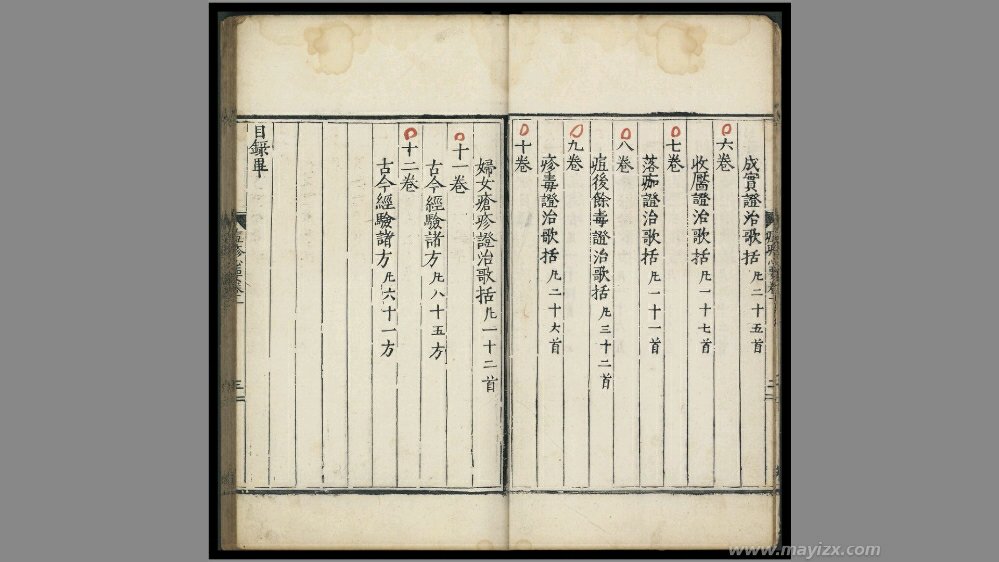 成實證治歌括凡二十五首
六卷
收靨證治歌括凡一十七首
七卷
落痂證治歌括凡一十一首
八卷
痘後餘毒證治歌括凡三十二首
九卷
疹毒證治歌括凡二十六首
十卷
婦女瘡疹證治歌括凡一十二首
十一卷
古今經驗諸方凡八十五方
十二卷
古今經驗諸方凡六十一方
目録畢
www.mayizx.com